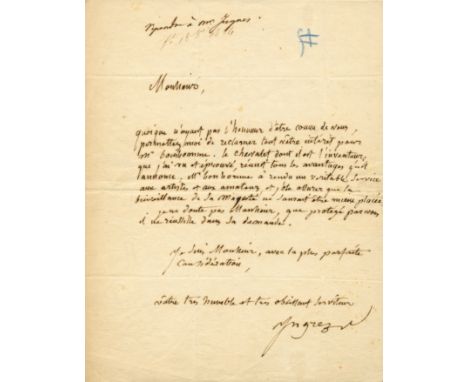 répondre à Mr Ingres.
Monsieur,
quoique n'ayant pas l'honneur d'être connu de vous,
permettez moi de reclamer tout vôtre interet pour
Mr bonhomme. le chevalet dont il est l'inventeur,
que j'ai vu et éprouvé, réunit tous les avantages qu'il
annonce. Mr bonhomme à rendu un veritable service
aux artistes et aux amateurs et j'ose assurer que la
bienveillance de Sa Majesté ne sauroit être mieux placée
je ne doute pas Monsieur, que protegé par vous
il ne réussisse dans sa demande.
Je suis Monsieur, avec la plus parfaite
Considération,
vôtre très humble et très obéissant serviteur
Ingres